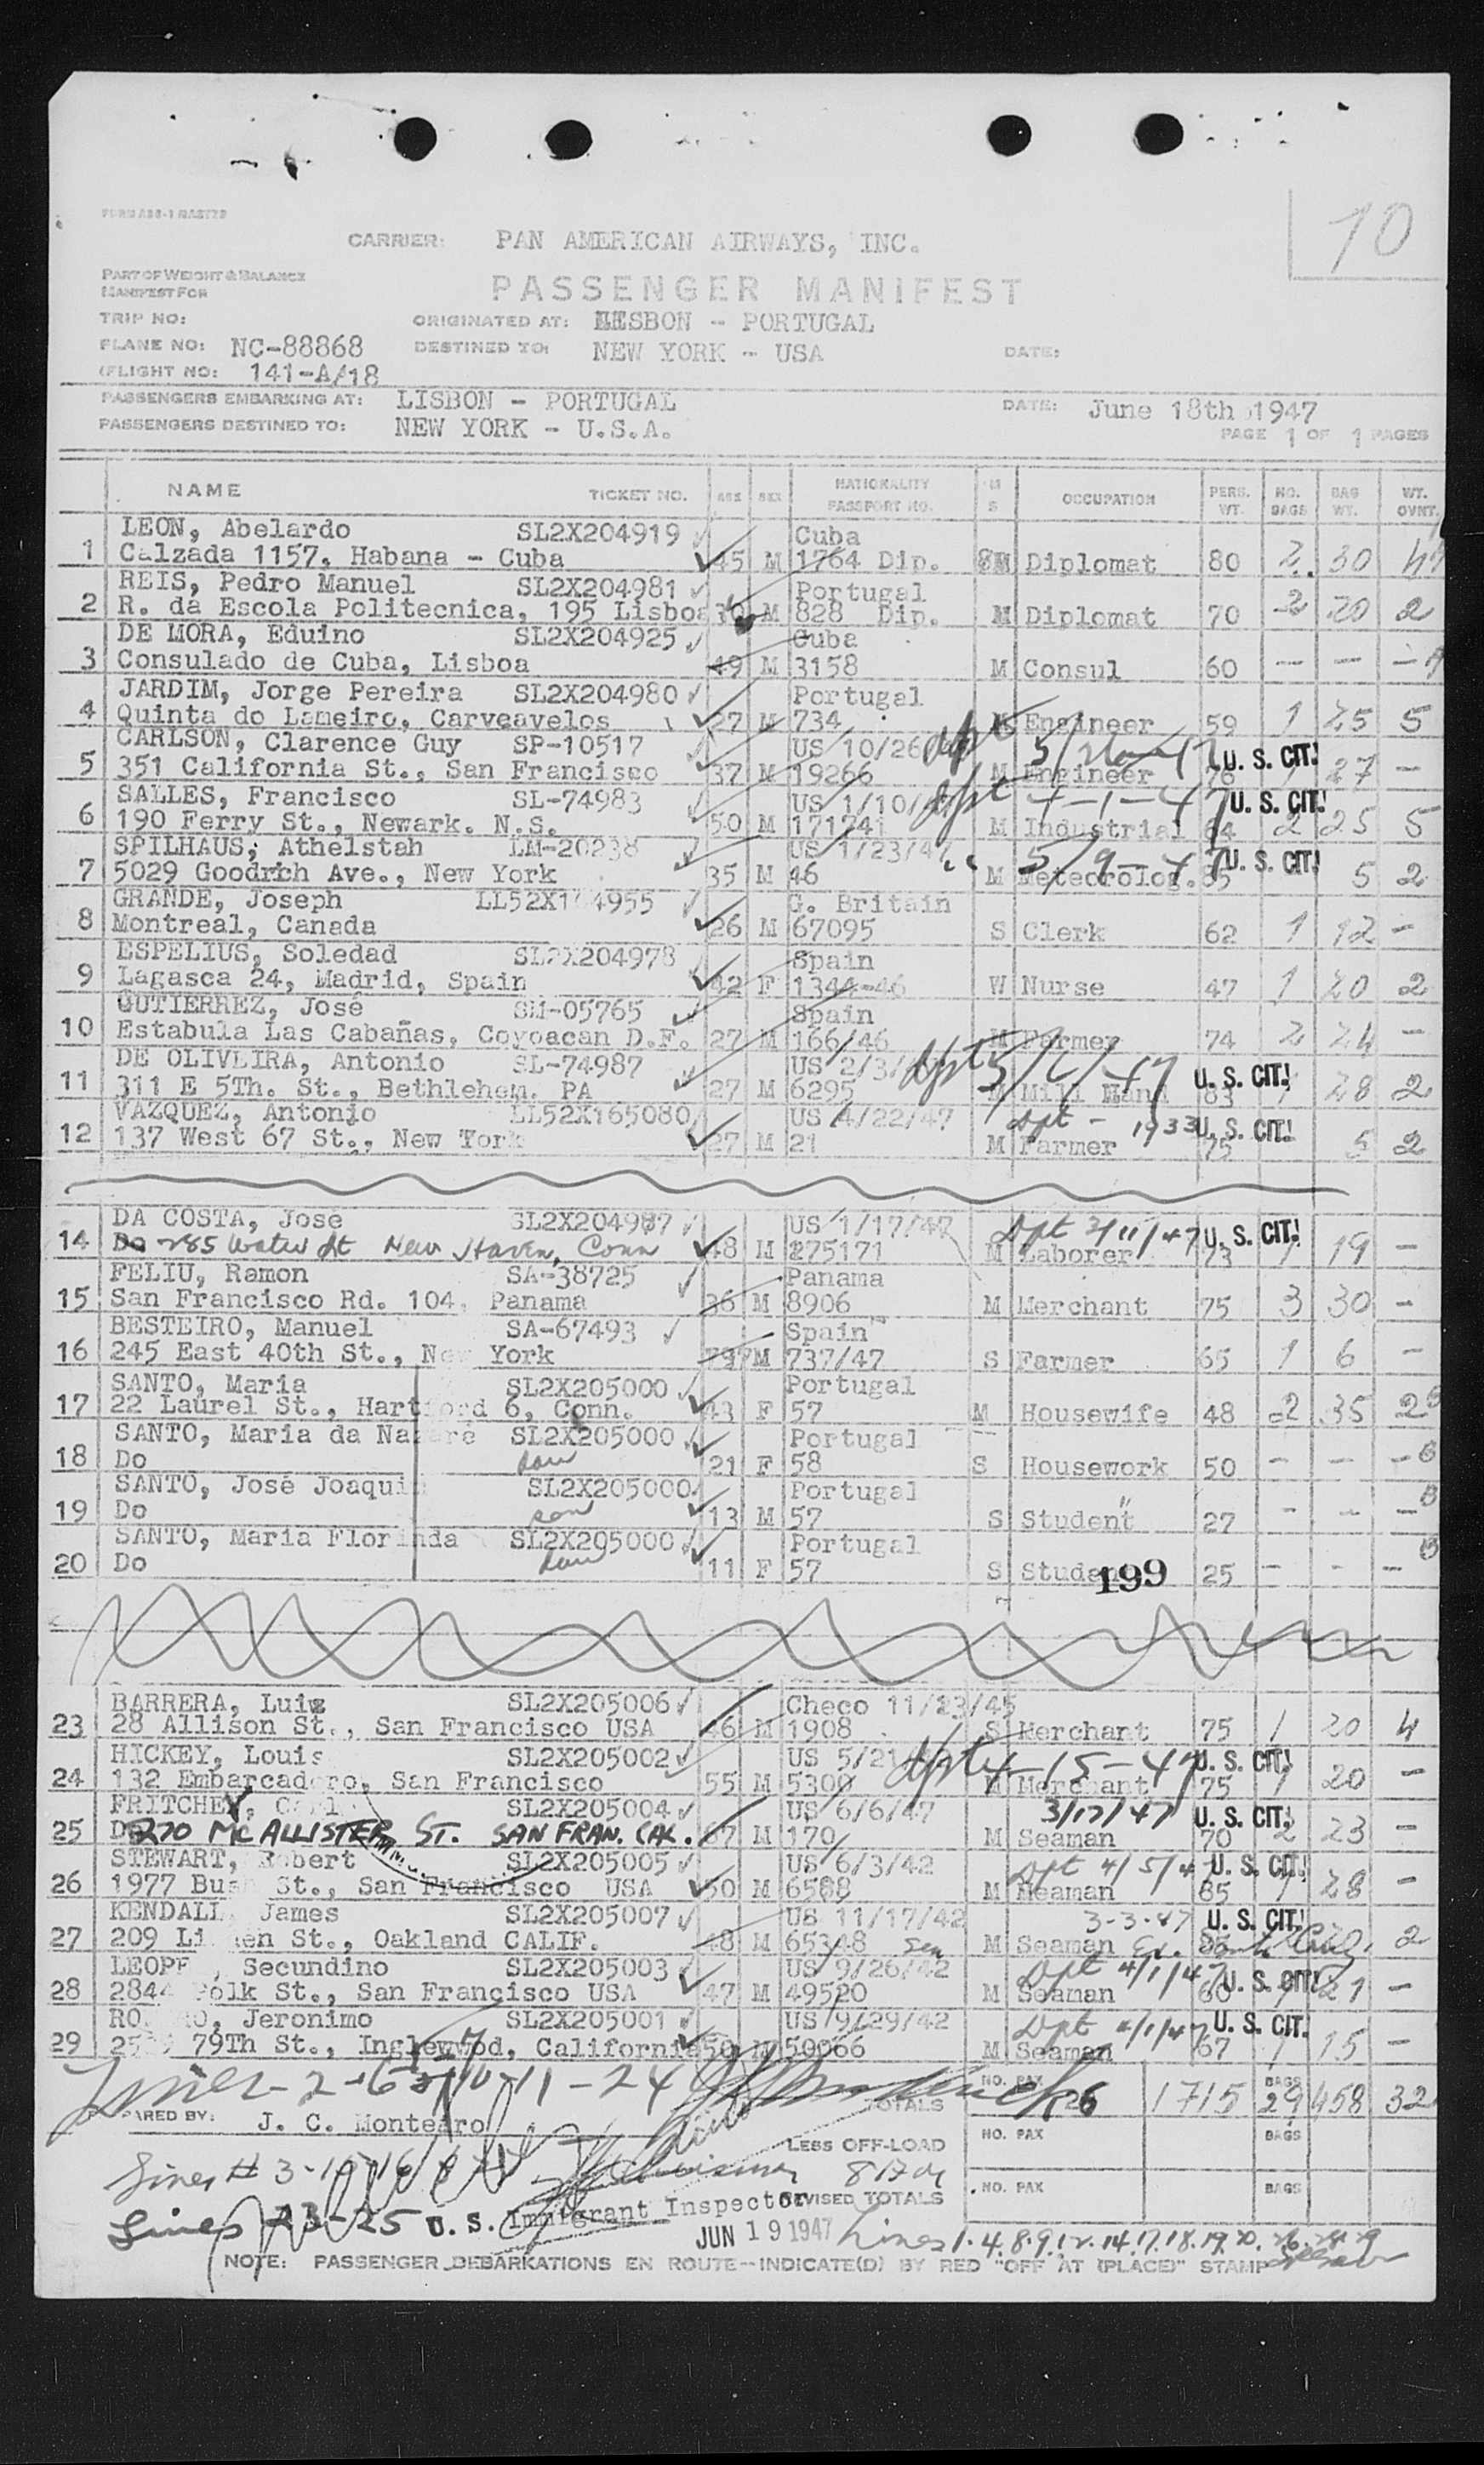 FORM ABS-1 MASTER
10
CARRIER: PAN AMERICAN AIRWAYS, INC.
PART OF WEIGHT & BALANCE
MANIFEST FOR
PASSENGER MANIFEST
TRIP NO: ORIGINATED AT: LISBON - PORTUGAL
PLANE NO: NC-88868 DESTINED TO: NEW YORK - USA DATE:
FLIGHT NO: 141-A/18
PASSENGERS EMBARKING AT: LISBON - PORTUGAL DATE: June 18th 1947
PASSENGERS DESTINED TO: NEW YORK - U.S.A. PAGE 1 OF 1 PAGES
NAME TICKET NO. AGE SEX NATIONALITY PASSPORT NO. M S OCCUPATION PERS. WT. NO. BAGS BAG WT. WT. OVNT.
LEON, Abelardo SL2X204919 Cuba
1 Calzada 1157, Habana - Cuba 45 M 1764 Dip. M Diplomat 80 2 30
REIS, Pedro Manuel SL2X204981 Portugal
2 R. da Escola Politecnica, 195 Lisboa 30 M 828 Dip. M Diplomat 70 2 20 2
DE MORA, Eduino SL2X204925 Cuba
3 Consulado de Cuba, Lisboa 49 M 3158 M Consul 60 — — —
JARDIM, Jorge Pereira SL2X204980 Portugal
4 Quinta do Lameiro, Carveavelos 27 M 734 M Engineer 59 1 25 5
CARLSON, Clarence Guy SP-10517 US 10/26 dpt U. S. CIT.
5 351 California St., San Francisco 37 M 19266 M Engineer 76 1 27 —
SALLES, Francisco SL-74983 US 1/10/ dpt 4-1-47 U. S. CIT.
6 190 Ferry St., Newark. N.S. 50 M 171741 M Industrial 64 2 25 5
SPILHAUS, Athelstah LM-20238 US 1/23/47 " 5/9-47 U. S. CIT.
7 5029 Goodrich Ave., New York 35 M 46 M Meteorolog. 65 5 2
GRANDE, Joseph LL52X1 4955 G. Britain
8 Montreal, Canada 26 M 67095 S Clerk 62 1 12 —
ESPELIUS, Soledad SL2X204978 Spain
9 Lagasca 24, Madrid, Spain 42 F 1344-46 W Nurse 47 1 20 2
GUTIERREZ, José SM-05765 Spain
10 Estabula Las Cabañas, Coyoacan D.F. 27 M 166/46 M Farmer 74 2 24 —
DE OLIVEIRA, Antonio SL-74987 US 2/3/ dpt 5/6/47 U. S. CIT.
11 311 E 5Th. St., Bethlehem. PA 27 M 6295 M Mill Hand 83 1 28 2
VAZQUEZ, Antonio LL52X165080 US 4/22/47 dpt - 1933 U. S. CIT.
12 137 West 67 St., New York 27 M 21 M Farmer 75 5 2
DA COSTA, Jose SL2X204987 US 1/17/47 Dpt 3/11/47 U. S. CIT.
14 Do 285 Water St New Haven, Conn 48 M 275171 M Laborer 73 1 19 —
FELIU, Ramon SA-38725 Panama
15 San Francisco Rd. 104, Panama 36 M 8906 M Merchant 75 3 30 —
BESTEIRO, Manuel SA-67493 Spain
16 245 East 40th St., New York M 737/47 S Farmer 65 1 6 —
SANTO, Maria SL2X205000 Portugal
17 22 Laurel St., Hartford 6, Conn. 43 F 57 M Housewife 48 2 35 2
SANTO, Maria da Nazare SL2X205000 Portugal
18 Do dau 21 F 58 S Housework 50 — — —
SANTO, José Joaquin SL2X205000 Portugal
19 Do son 13 M 57 S Student 27 — — —
SANTO, Maria Florinda SL2X205000 Portugal
20 Do dau 11 F 57 S Student 25 — — —
199
BARRERA, Luiz SL2X205006 Checo 11/23/45
23 28 Allison St., San Francisco USA 46 M 1908 S Merchant 75 1 20 4
HICKEY, Louis SL2X205002 US 5/21 dpt 4-15-47 U. S. CIT.
24 132 Embarcadero, San Francisco 55 M 5300 M Merchant 75 1 20 —
FRITCHEY, Carl SL2X205004 US 6/6/47 3/17/47 U. S. CIT.
25 Do 270 MCALLISTER ST. SAN FRAN. CAL. 67 M 170 M Seaman 70 2 23 —
STEWART, Robert SL2X205005 US 6/3/42 Dpt 4/5/47 U. S. CIT.
26 1977 Bush St., San Francisco USA 50 M 6588 M Seaman 85 1 28 —
KENDALL, James SL2X205007 US 11/17/42 3-3-47 U. S. CIT.
27 209 Li en St., Oakland CALIF. 48 M 65348 M Seaman 85 2
LEOPE , Secundino SL2X205003 US 9/26/42 Dpt 4/1/47 U. S. CIT.
28 2844 Polk St., San Francisco USA 47 M 49520 M Seaman 60 1 21 —
RO O, Jeronimo SL2X205001 US 9/29/42 Dpt 4/1/47 U. S. CIT.
29 25 79Th St., Inglewood, California 50 M 50066 M Seaman 67 1 15 —
TOTALS NO. PAX 26 1715 BAGS 29 458 32
PREPARED BY: J. C. Monteiro
LESS OFF-LOAD NO. PAX BAGS
Lines # 3-
REVISED TOTALS NO. PAX BAGS
Lines 23-25 U. S. Immigrant Inspector
JUN 19 1947 Lines 1.4.8.9.12.14.17.18.19.20.
NOTE: PASSENGER DEBARKATIONS EN ROUTE--INDICATE(D) BY RED "OFF AT (PLACE)" STAMP